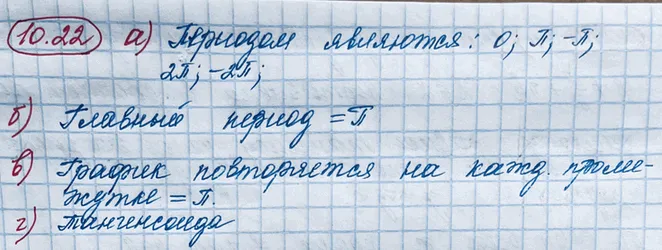 10.22 а) Периодом являются: 0; π; -π;
2π; -2π;
б) Главный период = π
в) График повторяется на кажд. проме-
жутке = π.
г) тангенсоида